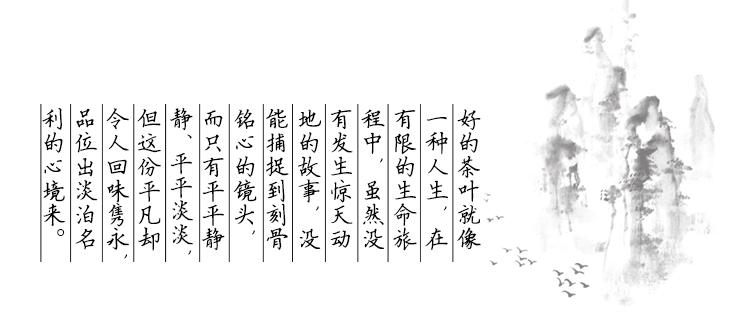 好的茶叶就像
一种人生，在
有限的生命旅
程中，虽然没
有发生惊天动
地的故事，没
能捕捉到刻骨
铭心的镜头，
而只有平平静
静、平平淡淡，
但这份平凡却
令人回味隽永，
品位出淡泊名
利的心境来。